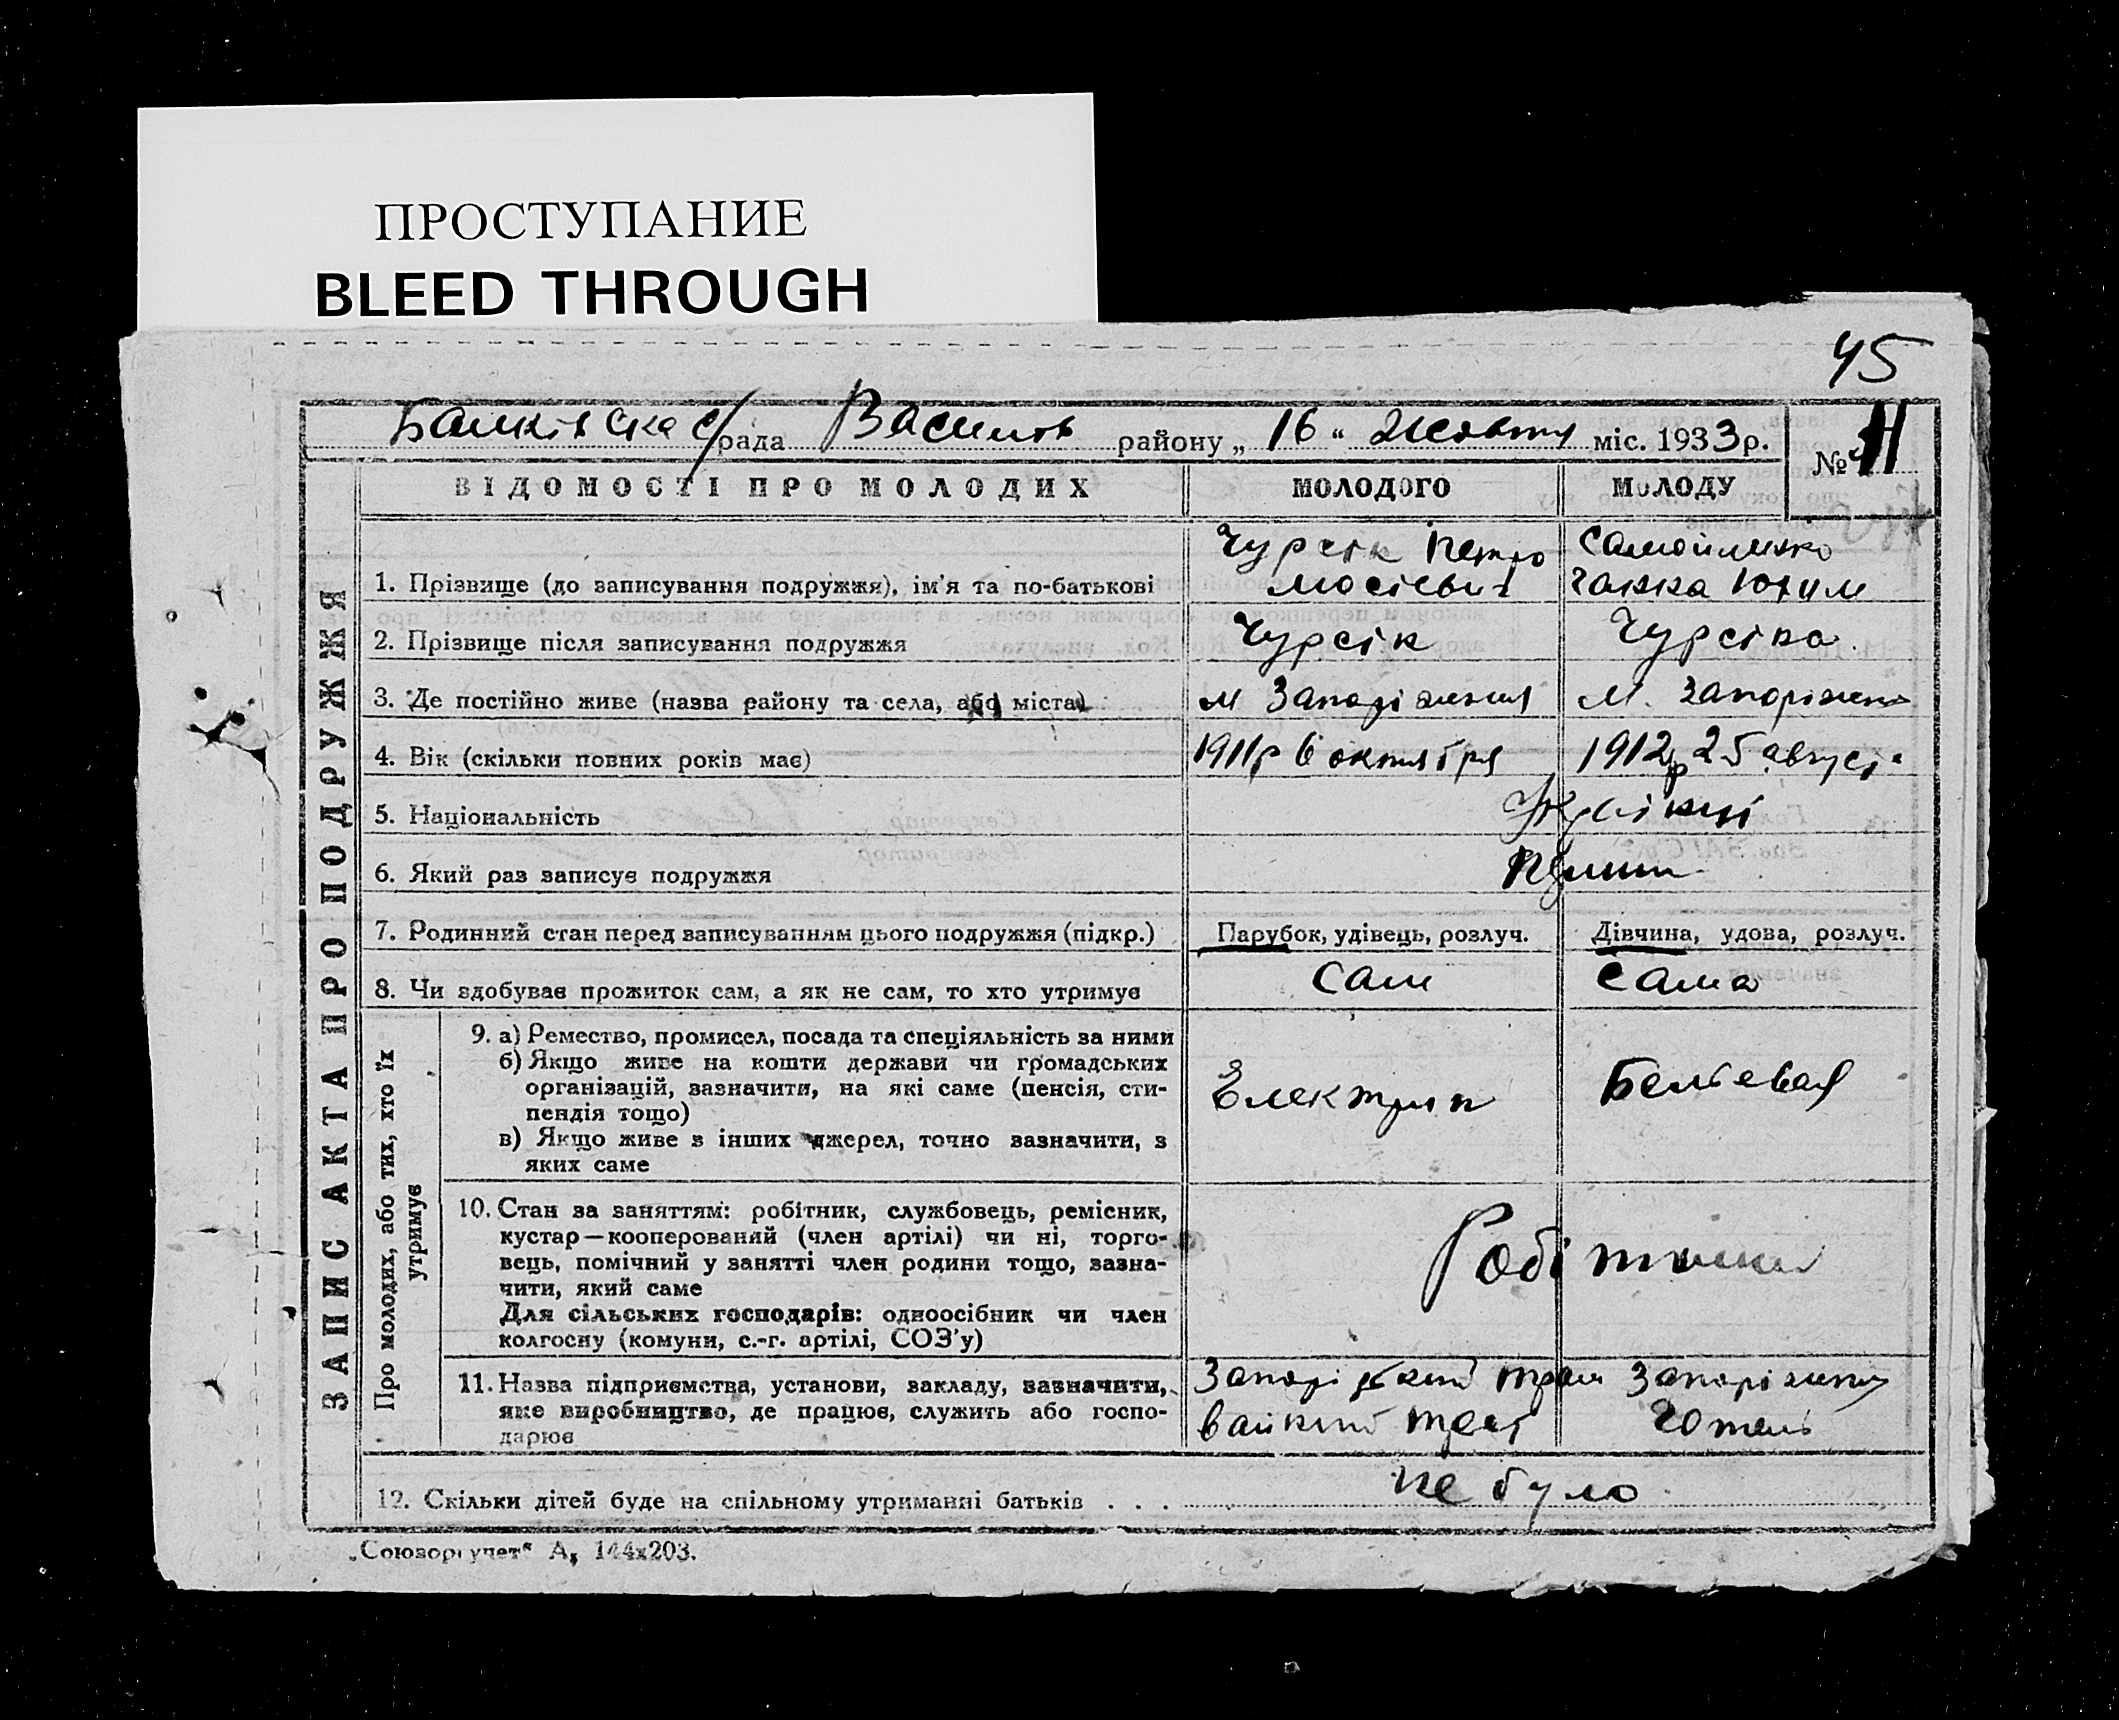 ПРОСТУПАНИЕ
BLEED THROUGH
45
Балківска с/рада Василів району „ 16 “ Жовтня міс. 1933 р.
№ 11
ВІДОМОСТІ ПРО МОЛОДИХ МОЛОДОГО МОЛОДУ
ЗАПИС АКТА ПРО ПОДРУЖЖЯ
Чурсік Петро Самойленко
1. Прізвище (до записування подружжя), ім'я та по-батькові Мосієвич Ганна Юхим
2. Прізвище після записування подружжя Чурсік Чурсіна
3. Де постійно живе (назва району та села, або міста) м Запоріжжя м. Запоріжжя
4. Вік (скільки повних років має) 1911р 6 октября 1912р 25 август
5. Національність Українці
6. Який раз записує подружжя Перший
7. Родинний стан перед записуванням цього подружжя (підкр.) Парубок, удівець, розлуч. Дівчина, удова, розлуч.
8. Чи здобуває прожиток сам, а як не сам, то хто утримує Сам Сама
Про молодих, або тих, хто їх
утримує
9. а) Ремество, промисел, посада та спеціяльність за ними
б) Якщо живе на кошти держави чи громадських
організацій, зазначити, на які саме (пенсія, сти-
пендія тощо)
в) Якщо живе з інших джерел, точно зазначити, з
яких саме
Електрик Бельевая
10. Стан за заняттям: робітник, службовець, ремісник,
кустар—кооперований (член артілі) чи ні, торго-
вець, помічний у занятті член родини тощо, зазна-
чити, який саме
Для сільських господарів: одноосібник чи член
колгоспу (комуни, с.-г. артілі, СОЗ'у)
Робітники
11. Назва підприємства, установи, закладу, зазначити,
яке виробництво, де працює, служить або госпо-
дарює
Запорізький трам Запоріжжя
вайкий трест Готель
12. Скільки дітей буде на спільному утриманні батьків . . . не було
„Союзоргучет“ А, 144х203.